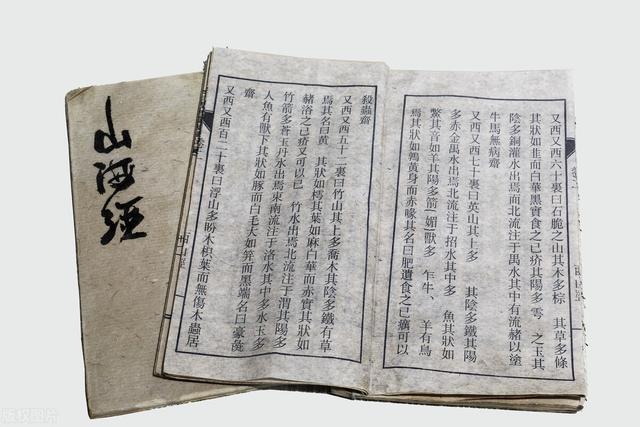 山海經
又西又西六十裏曰石脆之山其木多棕 其草多條
其狀如韭而白華黑實食之已疥其陽多雩 之玉其
陰多銅灌水出焉而北流注于禺水其中有流赭以塗
牛馬無病齋
又西又西七十裏曰英山其上多 其陰多鐵其陽
多赤金禺水出焉北流注于招水其中多 魚其狀如
鱉其音如羊其陽多箭 獸多 乍牛、 羊有鳥
焉其狀如鶉黃身而赤喙其名曰肥遺食之已癘可以
殺蟲齋
又西又西五十二裏曰竹山其上多喬木其陰多鐵有草
焉其名曰黃 其狀如樗其葉如麻白華而赤實其狀如
赭浴之已疥又可以已 竹水出焉北流注于渭其陽多
竹箭多蒼玉丹水出焉東南流注于洛水其中多水玉多
人魚有獸下其狀如豚而白毛大如笄而黑端名曰豪彘
齋
又西又西百二十裏曰浮山多盼木枳葉而無傷木蟲居
西山經
版权图片